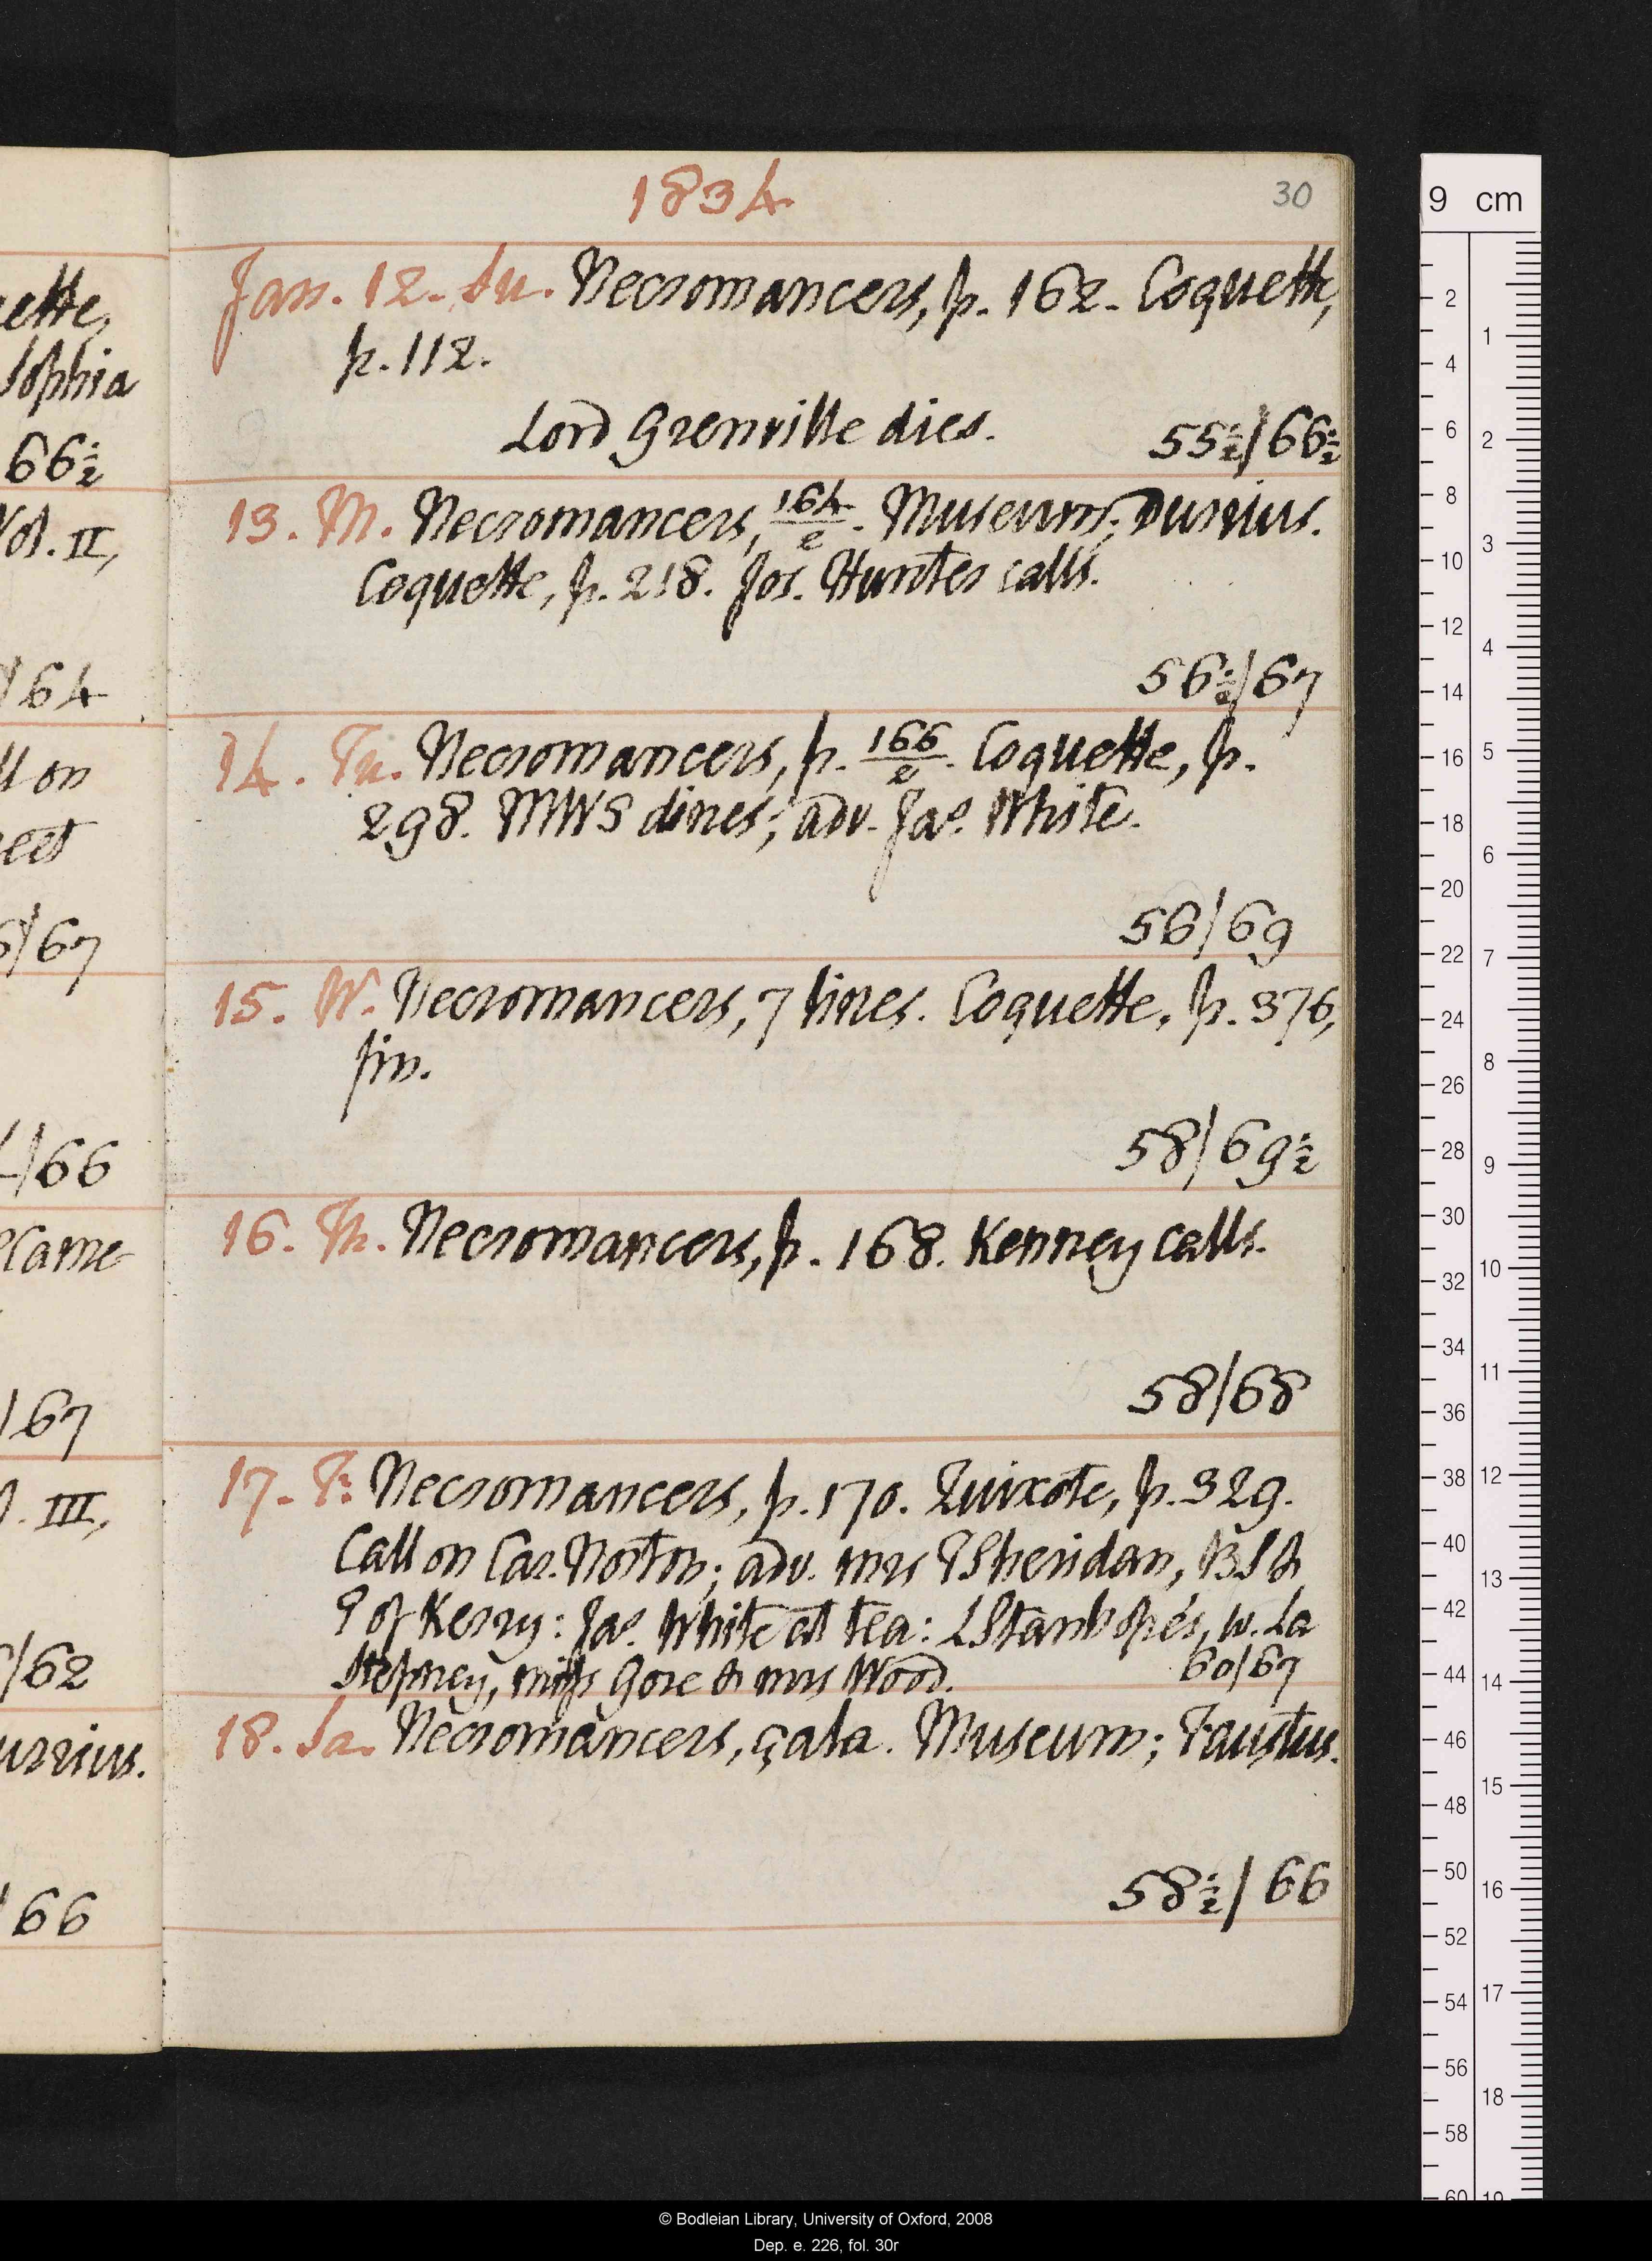 1834
30
Jan. 12. Su. Necromancers, p. 162. Coquette,
p. 112.
Lord Grenville dies. 55½/66½
13. M. Necromancers, 164/2. Museum; Durrius.
Coquette, p. 218. Jos. Hunter calls.
56½/67
14. Tu. Necromancers, p. 166/2. Coquette, p.
298. MWS dines; adv. Jas. White.
56/69
15. W. Necromancers, 7 lines. Coquette, p. 376,
fin.
58/69½
16. Th. Necromancers, p. 168. Kenney calls.
58/68
17. F. Necromancers, p. 170. Quixote, p. 329.
Call on Car. Norton; adv. mrs TSheridan, BS &
of Kerry: Jas. White at tea: LStanhope's, w. La
Stepney, miss Gore & mrs Wood. 60/67
18. Sa. Necromancers, çala. Museum; Faustus.
58½/66
ette,
Sophia
66½
Vol. II,
/64
ll on
eet
/67
/66
Came
/67
. III,
/62
urrius.
66
9 cm
2
4
6
8
10
12
14
16
18
20
22
24
26
28
30
32
34
36
38
40
42
44
46
48
50
52
54
56
58
60
1
2
3
4
5
6
7
8
9
10
11
12
13
14
15
16
17
18
19
© Bodleian Library, University of Oxford, 2008
Dep. e. 226, fol. 30r